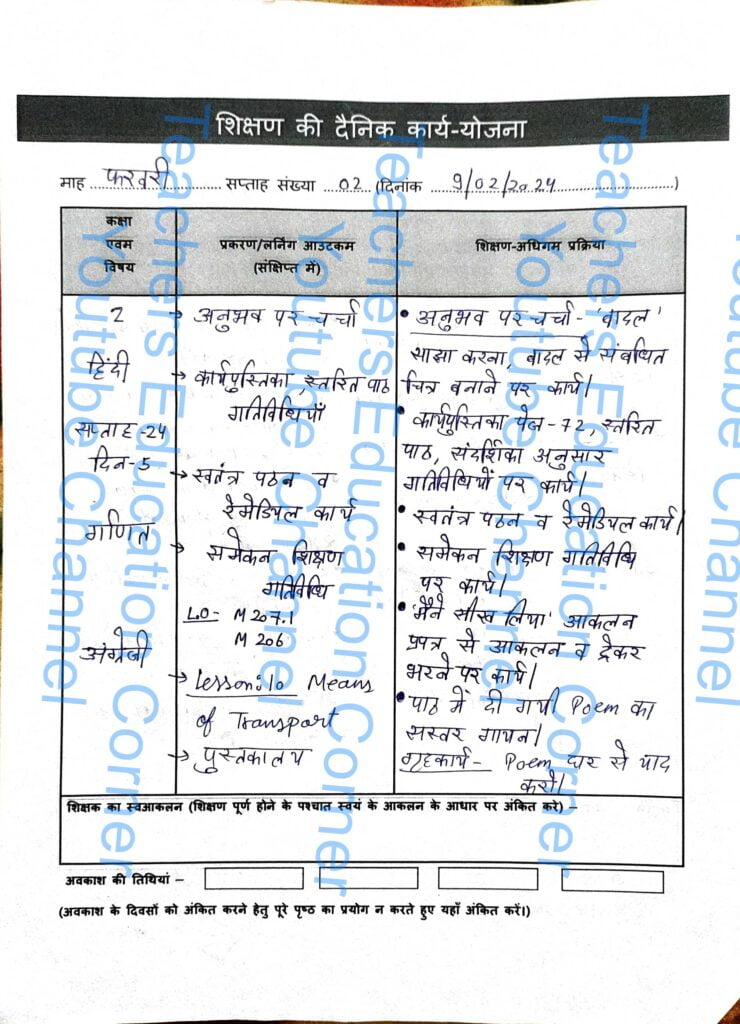 शिक्षण की दैनिक कार्य-योजना
माह फरवरी सप्ताह संख्या 02 (दिनांक 9/02/2024)
कक्षा
एवम
विषय
प्रकरण/लर्निंग आउटकम
(संक्षिप्त में)
शिक्षण-अधिगम प्रक्रिया
2
हिंदी
सप्ताह-24
दिन-5
गणित
अंग्रेजी
→ अनुभव पर चर्चा
→ कार्यपुस्तिका, स्तरित पाठ
गतिविधियाँ
→ स्वतंत्र पठन व
रेमेडियल कार्य
→ समेकन शिक्षण
गतिविधि
LO- M 207.1
M 206
→ Lesson:10 Means
of Transport
→ पुस्तकालय
• अनुभव पर चर्चा - 'बादल'
साझा करना, बादल से संबंधित
चित्र बनाने पर कार्य।
• कार्यपुस्तिका पेज-72, स्तरित
पाठ, संदर्शिका अनुसार
गतिविधियों पर कार्य।
• स्वतंत्र पठन व रेमेडियल कार्य।
• समेकन शिक्षण गतिविधि
पर कार्य।
• 'मैंने सीख लिया' आकलन
प्रपत्र से आकलन व ट्रेकर
भरने पर कार्य।
• पाठ में दी गयी Poem का
सस्वर गायन।
गृहकार्य- Poem घर से याद
करो।
शिक्षक का स्वआकलन (शिक्षण पूर्ण होने के पश्चात स्वयं के आकलन के आधार पर अंकित करे) –
अवकाश की तिथियां –
(अवकाश के दिवसों को अंकित करने हेतु पूरे पृष्ठ का प्रयोग न करते हुए यहाँ अंकित करें।)
Teachers Education Corner
Youtube Channel
Teachers Education Corner
Youtube Channel
Teachers Education Corner
Youtube Channel